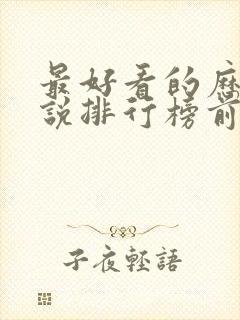 最好看的历
說排行榜前
子夜輕語